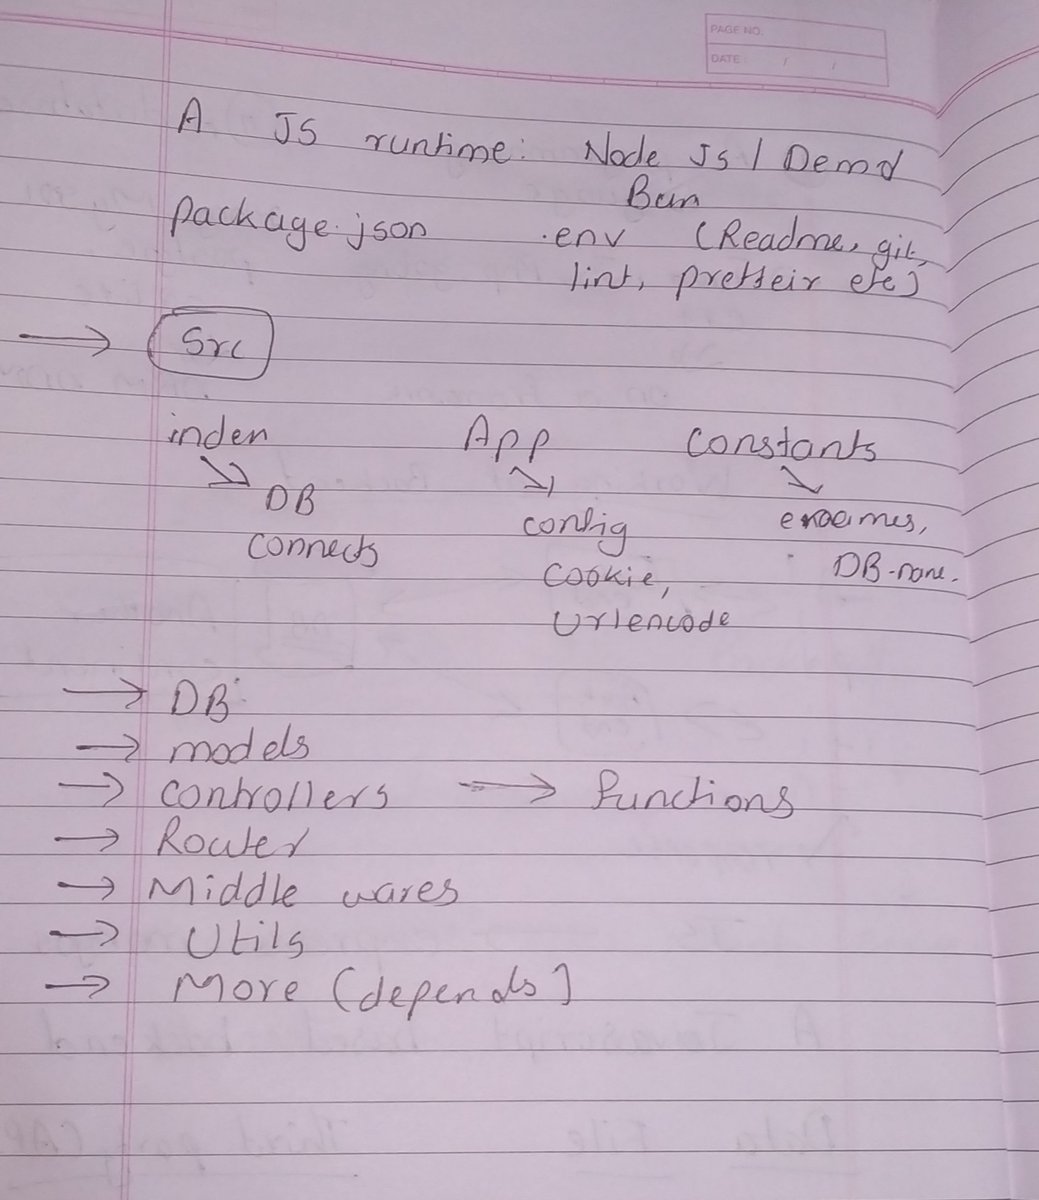 PAGE NO.
DATE: / /
A JS runtime: Node Js / Demo
Bun
package.json .env (Readme, git,
lint, pretteir etc)
→ Src
index App Constants
DB config enums,
connects Cookie, DB-name.
Urlencode
→ DB
→ models
→ Controllers → functions
→ Router
→ Middle wares
→ Utils
→ More (depends)